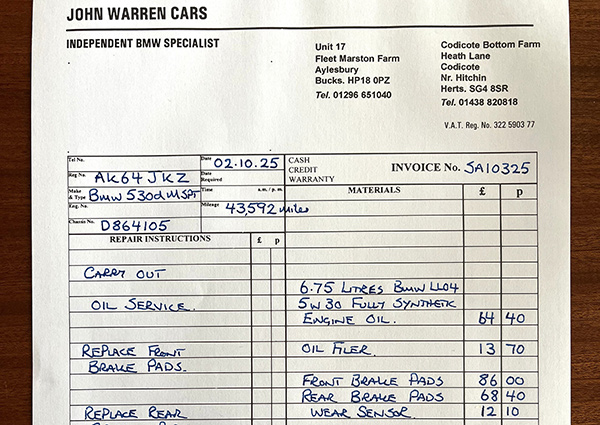 JOHN WARREN CARS
INDEPENDENT BMW SPECIALIST
Unit 17
Fleet Marston Farm
Aylesbury
Bucks. HP18 0PZ
Tel. 01296 651040
Codicote Bottom Farm
Heath Lane
Codicote
Nr. Hitchin
Herts. SG4 8SR
Tel. 01438 820818
V.A.T. Reg. No. 322 5903 77
Tel No.
Date 02.10.25
CASH
CREDIT
WARRANTY
INVOICE No. SA10325
Reg No. AK64 JKZ
Date Required
Make & Type BMW 530d M SPT
Time a.m./p.m.
Eng. No.
Mileage 43,592 miles
Chassis No. D864105
MATERIALS £ p
REPAIR INSTRUCTIONS £ p
CARRY OUT
OIL SERVICE.
REPLACE FRONT
BRAKE PADS.
REPLACE REAR
6.75 LITRES BMW LL04
5W30 FULLY SYNTHETIC
ENGINE OIL. 64 40
OIL FILER. 13 70
FRONT BRAKE PADS 86 00
REAR BRAKE PADS 68 40
WEAR SENSOR. 12 10